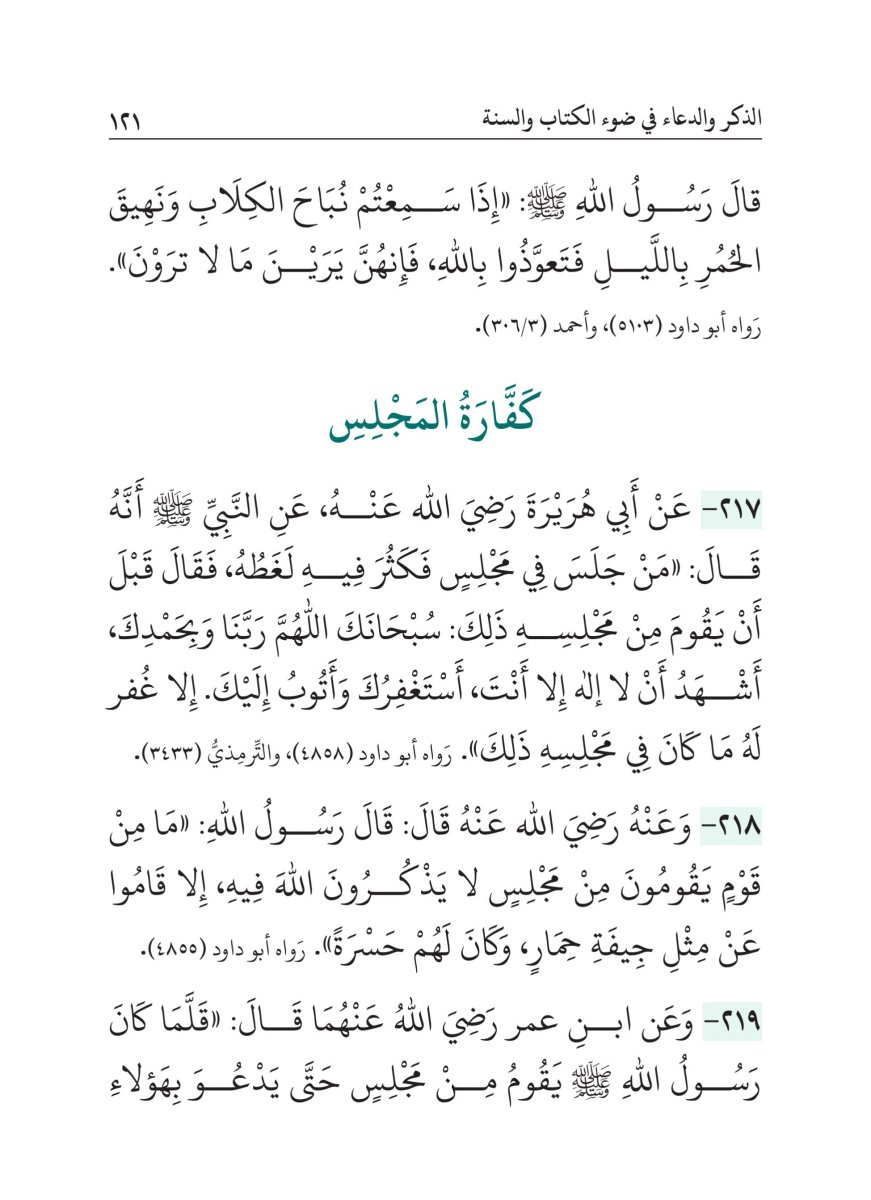 الذكر والدعاء في ضوء الكتاب والسنة ١٢١
قالَ رَسُولُ اللهِ ﷺ: «إِذَا سَمِعْتُمْ نُبَاحَ الكِلَابِ وَنَهِيقَ
الحُمُرِ بِاللَّيلِ فَتَعوَّذُوا بِاللهِ، فَإِنهُنَّ يَرَيْنَ مَا لا ترَوْنَ».
رَواه أبو داود (٥١٠٣)، وأحمد (٣٠٦/٣).
كَفَّارَةُ المَجْلِسِ
٢١٧- عَنْ أَبِي هُرَيْرَةَ رَضِيَ الله عَنْهُ، عَنِ النَّبِيِّ ﷺ أَنَّهُ
قَالَ: «مَنْ جَلَسَ فِي مَجْلِسٍ فَكَثُرَ فِيهِ لَغَطُهُ، فَقَالَ قَبْلَ
أَنْ يَقُومَ مِنْ مَجْلِسِهِ ذَلِكَ: سُبْحَانَكَ اللَّهُمَّ رَبَّنَا وَبِحَمْدِكَ،
أَشْهَدُ أَنْ لا إلٰه إِلا أَنْتَ، أَسْتَغْفِرُكَ وَأَتُوبُ إِلَيْكَ. إِلا غُفر
لَهُ مَا كَانَ فِي مَجْلِسِهِ ذَلِكَ». رَواه أبو داود (٤٨٥٨)، والتِّرمِذيُّ (٣٤٣٣).
٢١٨- وَعَنْهُ رَضِيَ الله عَنْهُ قَالَ: قَالَ رَسُولُ اللهِ: «مَا مِنْ
قَوْمٍ يَقُومُونَ مِنْ مَجْلِسٍ لا يَذْكُرُونَ اللهَ فِيهِ، إِلا قَامُوا
عَنْ مِثْلِ جِيفَةِ حِمَارٍ، وَكَانَ لَهُمْ حَسْرَةً». رَواه أبو داود (٤٨٥٥).
٢١٩- وَعَن ابنِ عمر رَضِيَ اللهُ عَنْهُمَا قَالَ: «قَلَّمَا كَانَ
رَسُولُ اللهِ ﷺ يَقُومُ مِنْ مَجْلِسٍ حَتَّى يَدْعُوَ بِهَؤلاءِ